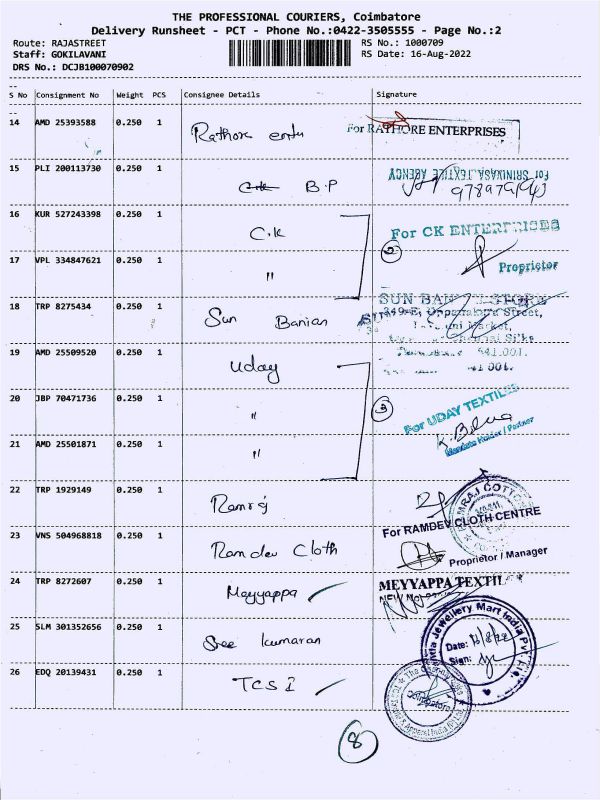 THE PROFESSIONAL COURIERS, Coimbatore
Delivery Runsheet - PCT - Phone No.:0422-3505555 - Page No.:2
Route: RAJASTREET RS No.: 1000709
Staff: GOKILAVANI RS Date: 16-Aug-2022
DRS No.: DCJB100070902
S No Consignment No Weight PCS Consignee Details Signature
14 AMD 25393588 0.250 1 Rathore For RATHORE ENTERPRISES
15 PLI 200113730 0.250 1 B.P For SRINIVASA TEXTILE AGENCY
16 KUR 527243398 0.250 1 C.K For CK ENTERPRISES
17 VPL 334847621 0.250 1 " 2 Proprietor
18 TRP 8275434 0.250 1 Sun Banian SUN STORE
Street,
Market,
641.001.
19 AMD 25509520 0.250 1 Uday
20 JBP 70471736 0.250 1 " 3 For UDAY TEXTILES
Mandate Holder / Partner
21 AMD 25501871 0.250 1 "
22 TRP 1929149 0.250 1 Ramraj RAMRAJ COTTON
23 VNS 504968818 0.250 1 Ramdev Cloth For RAMDEV CLOTH CENTRE
Proprietor / Manager
24 TRP 8272607 0.250 1 Meyyappa ✓ MEYYAPPA TEXTIL
25 SLM 301352656 0.250 1 Sree Kumaran Jewellery Mart India
Date: 16/8/22
Sign:
26 EDQ 20139431 0.250 1 TCS I ✓ Coimbatore
8